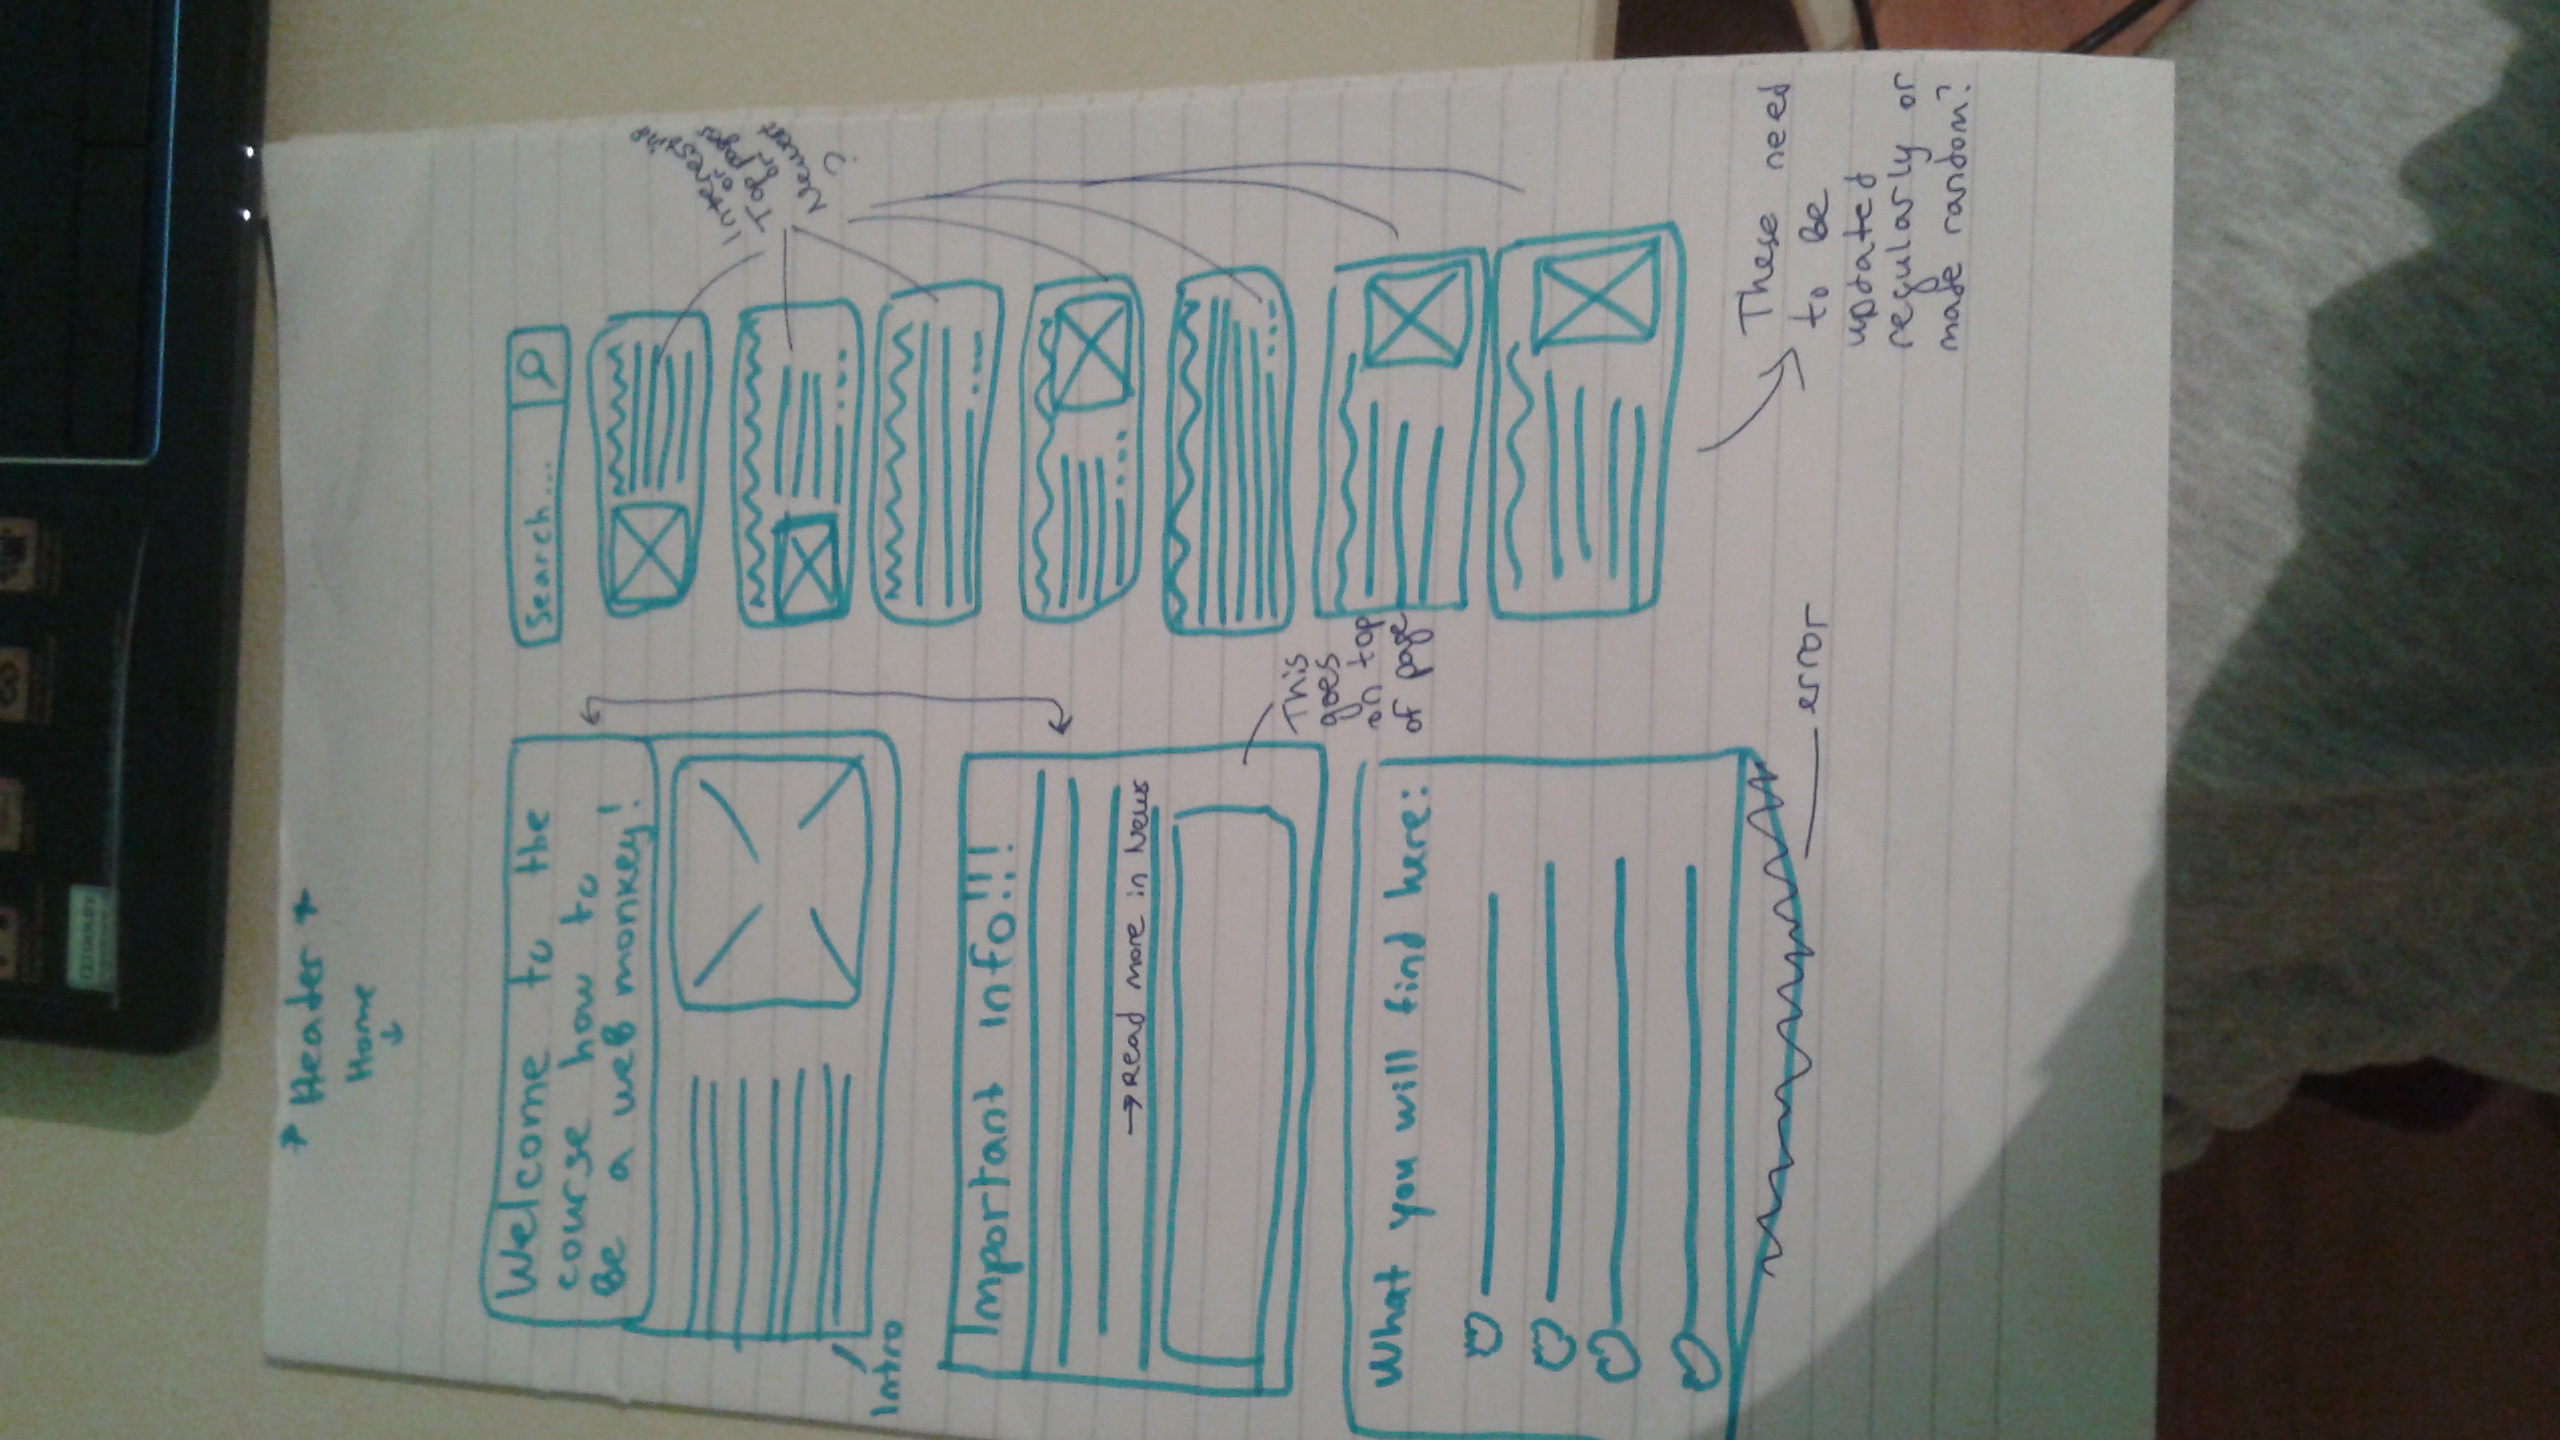 Header
Home
Welcome to the
course how to
be a web monkey!
Intro
Important info!!!
→ Read more in News
This
goes
on top
of page
What you will find here:
error
Search...
Interesting
or
Top pages
or
Newest
:)
These need
to be
updated
regularly or
made random?